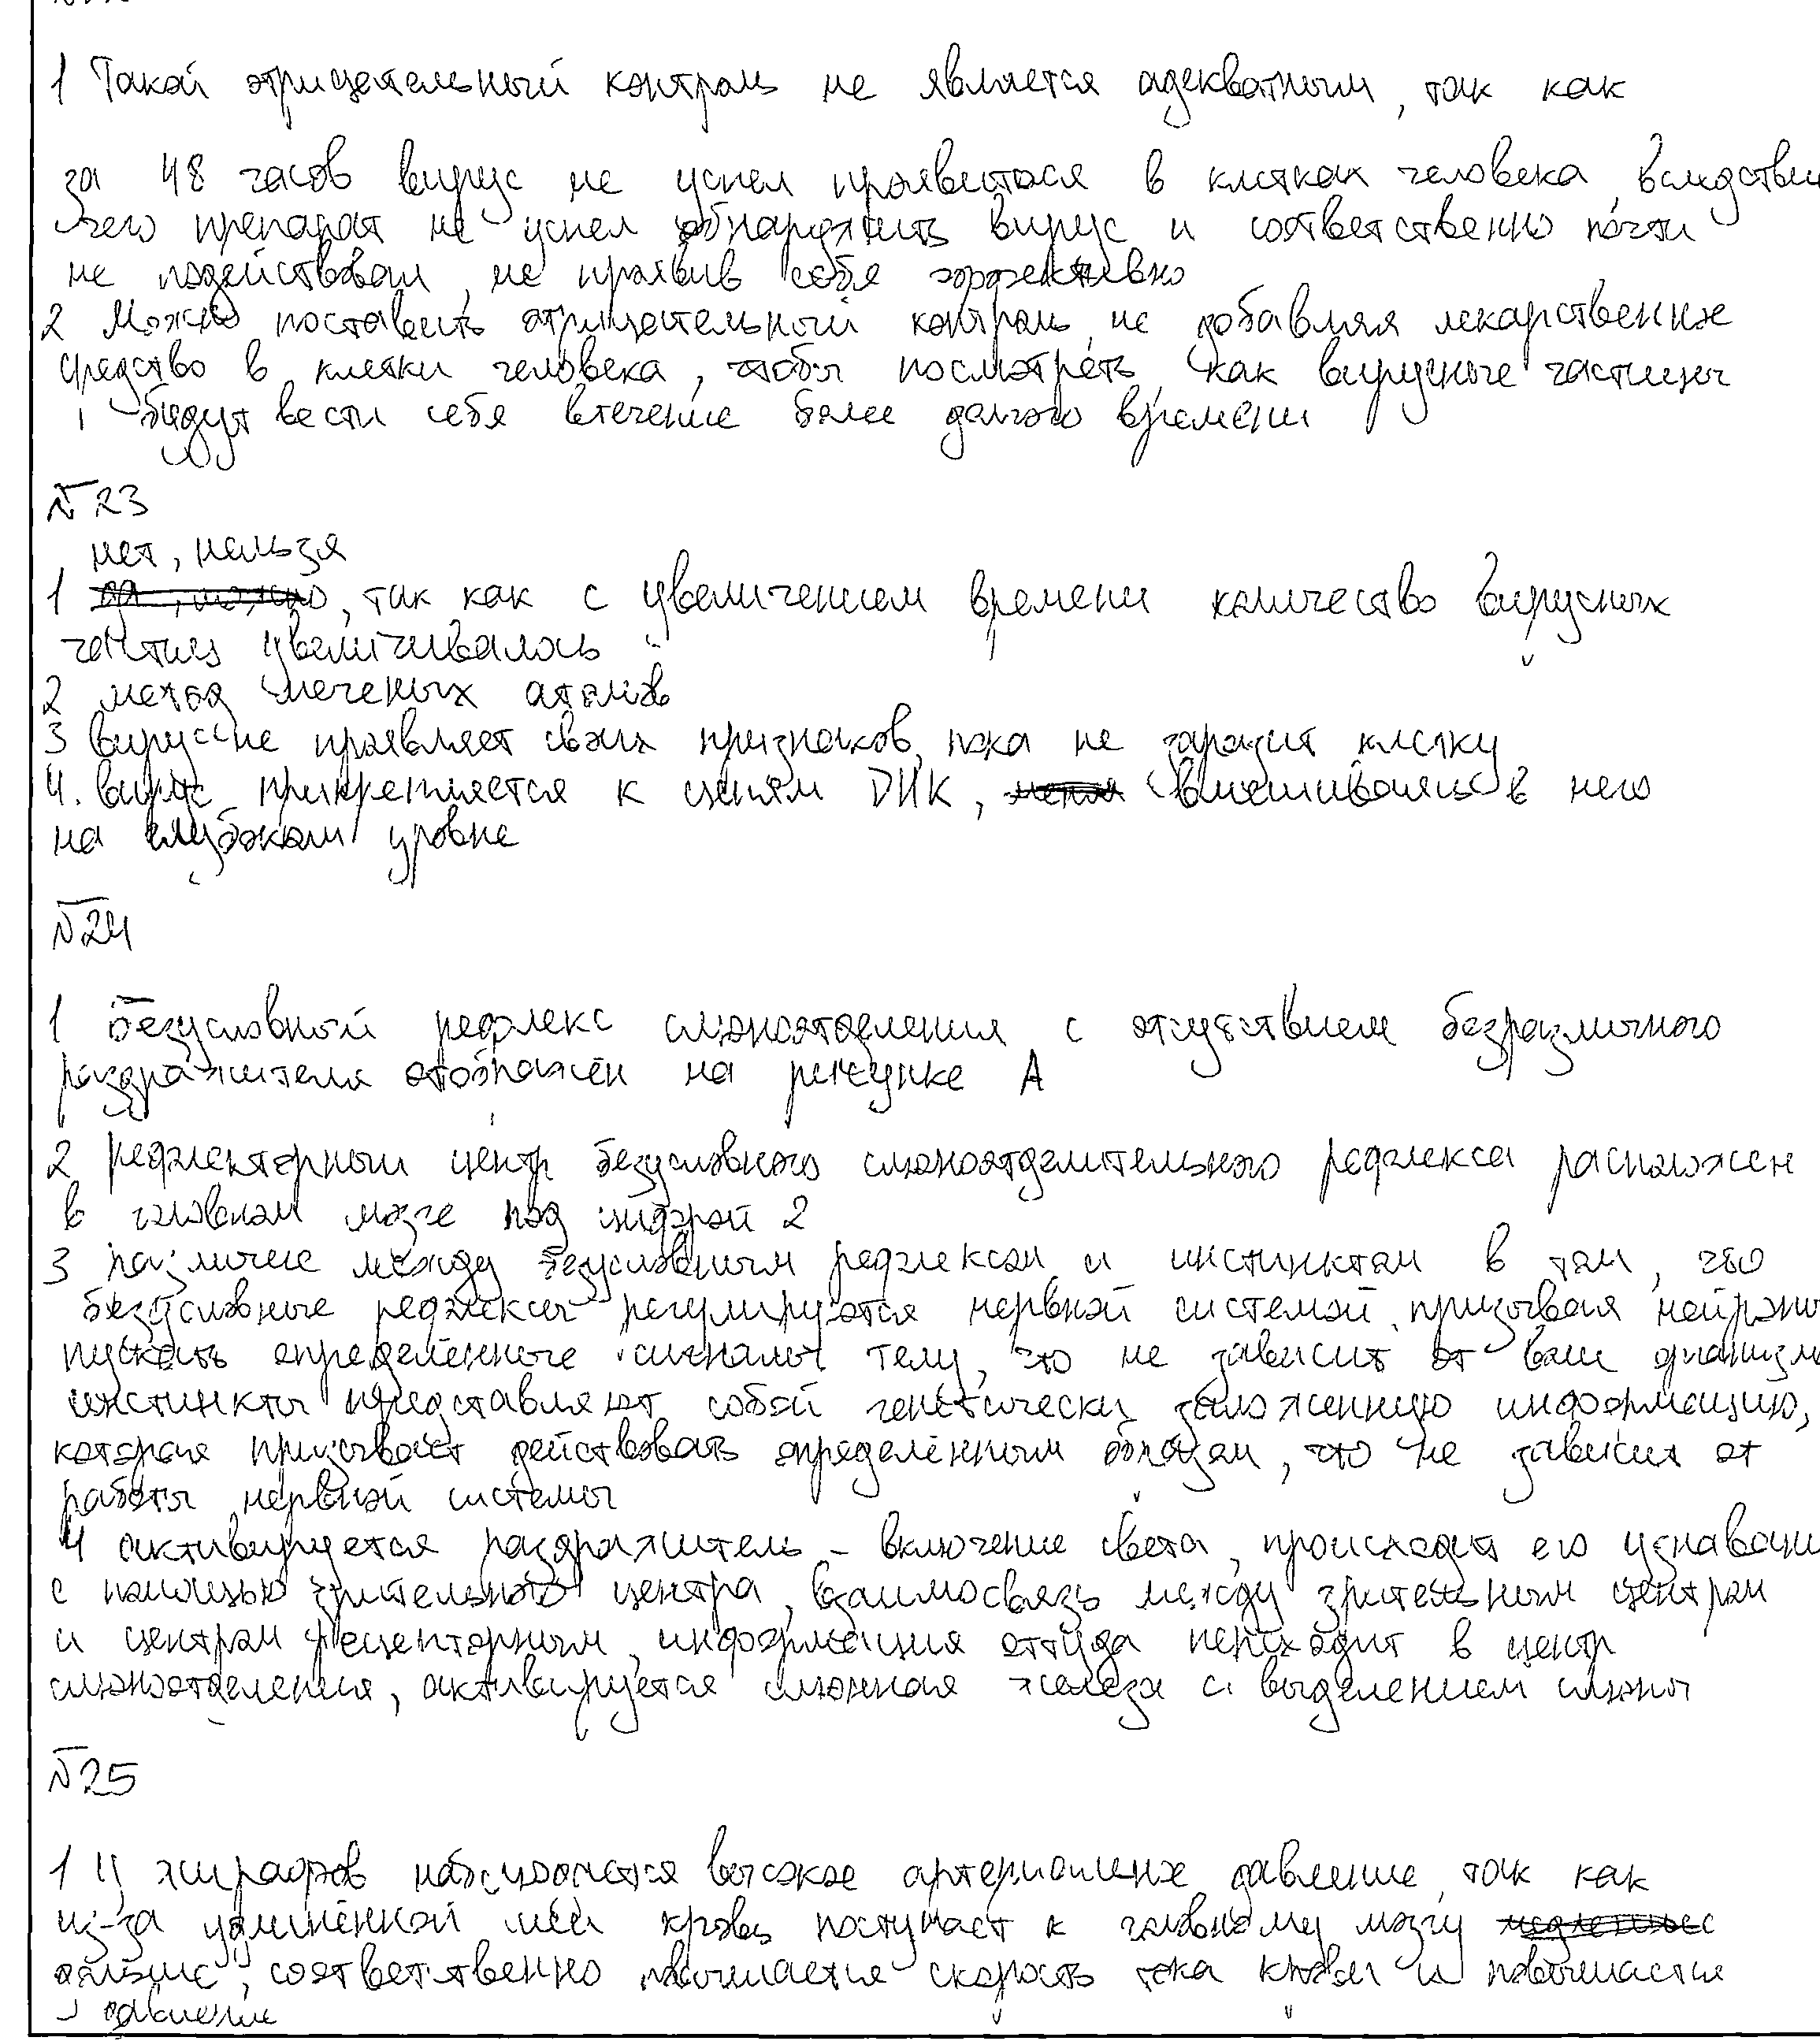 1 Такой отрицательный контроль не является адекватным, так как
за 48 часов вирус не успел проявиться в клетках человека, вследствии
чего препарат не успел обнаружить вирус и соответственно почти
не подействовал, не проявив себя эффективно
2 Можно поставить отрицательный контроль, не добавляя лекарственное
средство в клетки человека, чтобы посмотреть, как вирусные частицы
будут вести себя втечение более долгого времени
№23
нет, нельзя
1 , так как с увеличением времени количество вирусных
частиц увеличивалось
2 метод меченых атомов
3 вирус не проявляет своих признаков, пока не заразит клетку
4. вирус прикрепляется к цепям ДНК, вмешиваясь в него
на глубоком уровне
№24
1 Безусловный рефлекс слюноотделения с отсутствием безразличного
раздражителя отображён на рисунке А
2 рефлекторный центр безусловного слюноотделительного рефлекса расположен
в головном мозге под цифрой 2
3 различие между безусловным рефлексом и инстинктом в том, что
безусловные рефлексы регулируются нервной системой, призывая нейроны
пускать определённые сигналы телу, что не зависит от воли организма
инстинкты представляют собой генетически заложенную информацию,
которая призывает действовать определённым образом, что не зависит от
работы нервной системы
4 активируется раздражитель - включение света, происходит его узнавание
с помощью зрительного центра, взаимосвязь между зрительным центром
и центром рецепторным, информация оттуда переходит в центр
слюноотделения, активируется слюнная железа с выделением слюны
№25
1 У жирафов наблюдается высокое артериальное давление, так как
из-за удлинённой шеи кровь поступает к головному мозгу
дольше, соответственно повышается скорость тока крови и повышается
давление